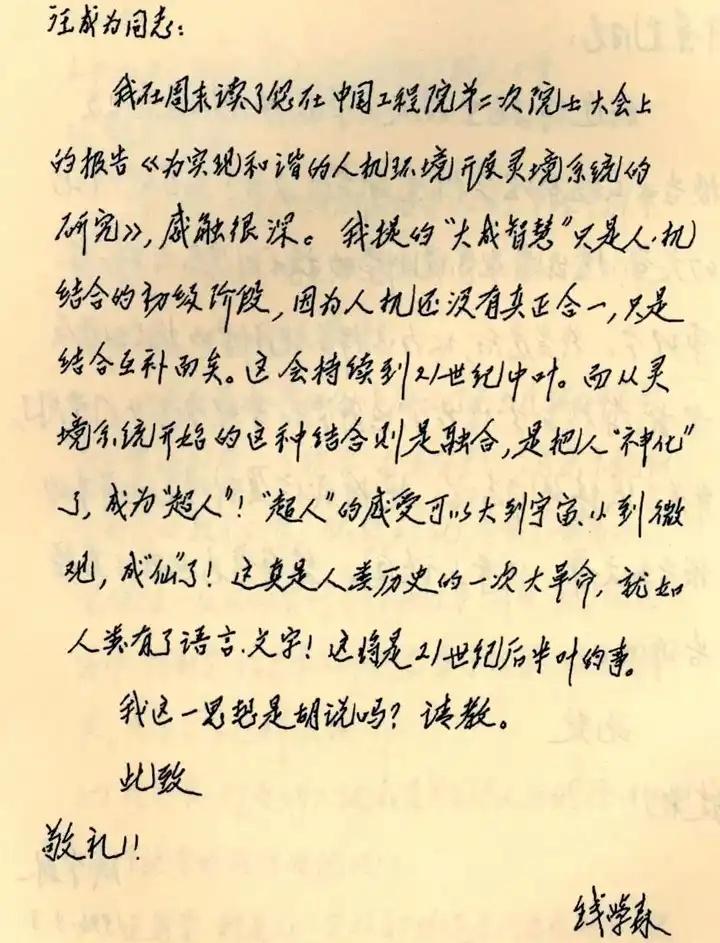 汪成为同志：
我在周末读了您在中国工程院第二次院士大会上
的报告《为实现和谐的人机环境开展灵境系统的
研究》，感触很深。我提的“大成智慧”只是人、机
结合的初级阶段，因为人机还没有真正合一，只是
结合互补而矣。这会持续到21世纪中叶。而从灵
境系统开始的这种结合则是融合，是把人“神化”
了，成为“超人”！“超人”的感受可以大到宇宙、小到微
观，成“仙”了！这真是人类历史的一次大革命，就如
人类有了语言、文字！这将是21世纪后半叶的事。
我这一思想是胡说吗？请教。
此致
敬礼！
钱学森